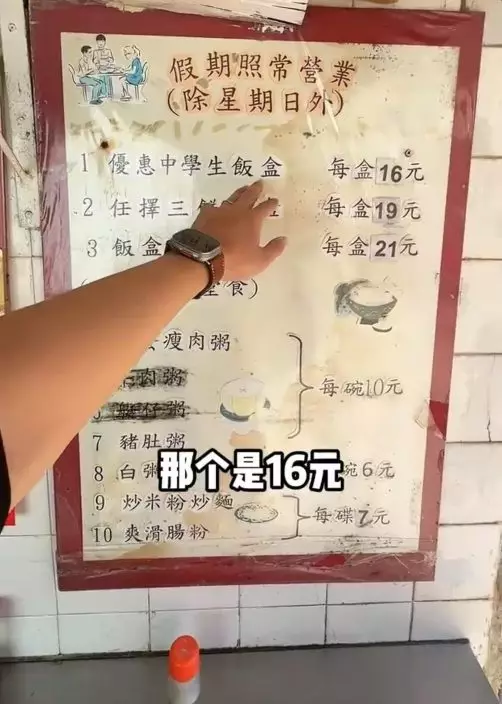 假期照常營業
(除星期日外)
1 優惠中學生飯盒 每盒16元
2 任擇三 每盒19元
3 飯盒 每盒21元
食)
瘦肉粥
肉粥
每碗10元
艇仔粥
7 豬肚粥
那个是16元
8 白粥 碗6元
9 炒米粉炒麵
每碟7元
10 爽滑腸粉